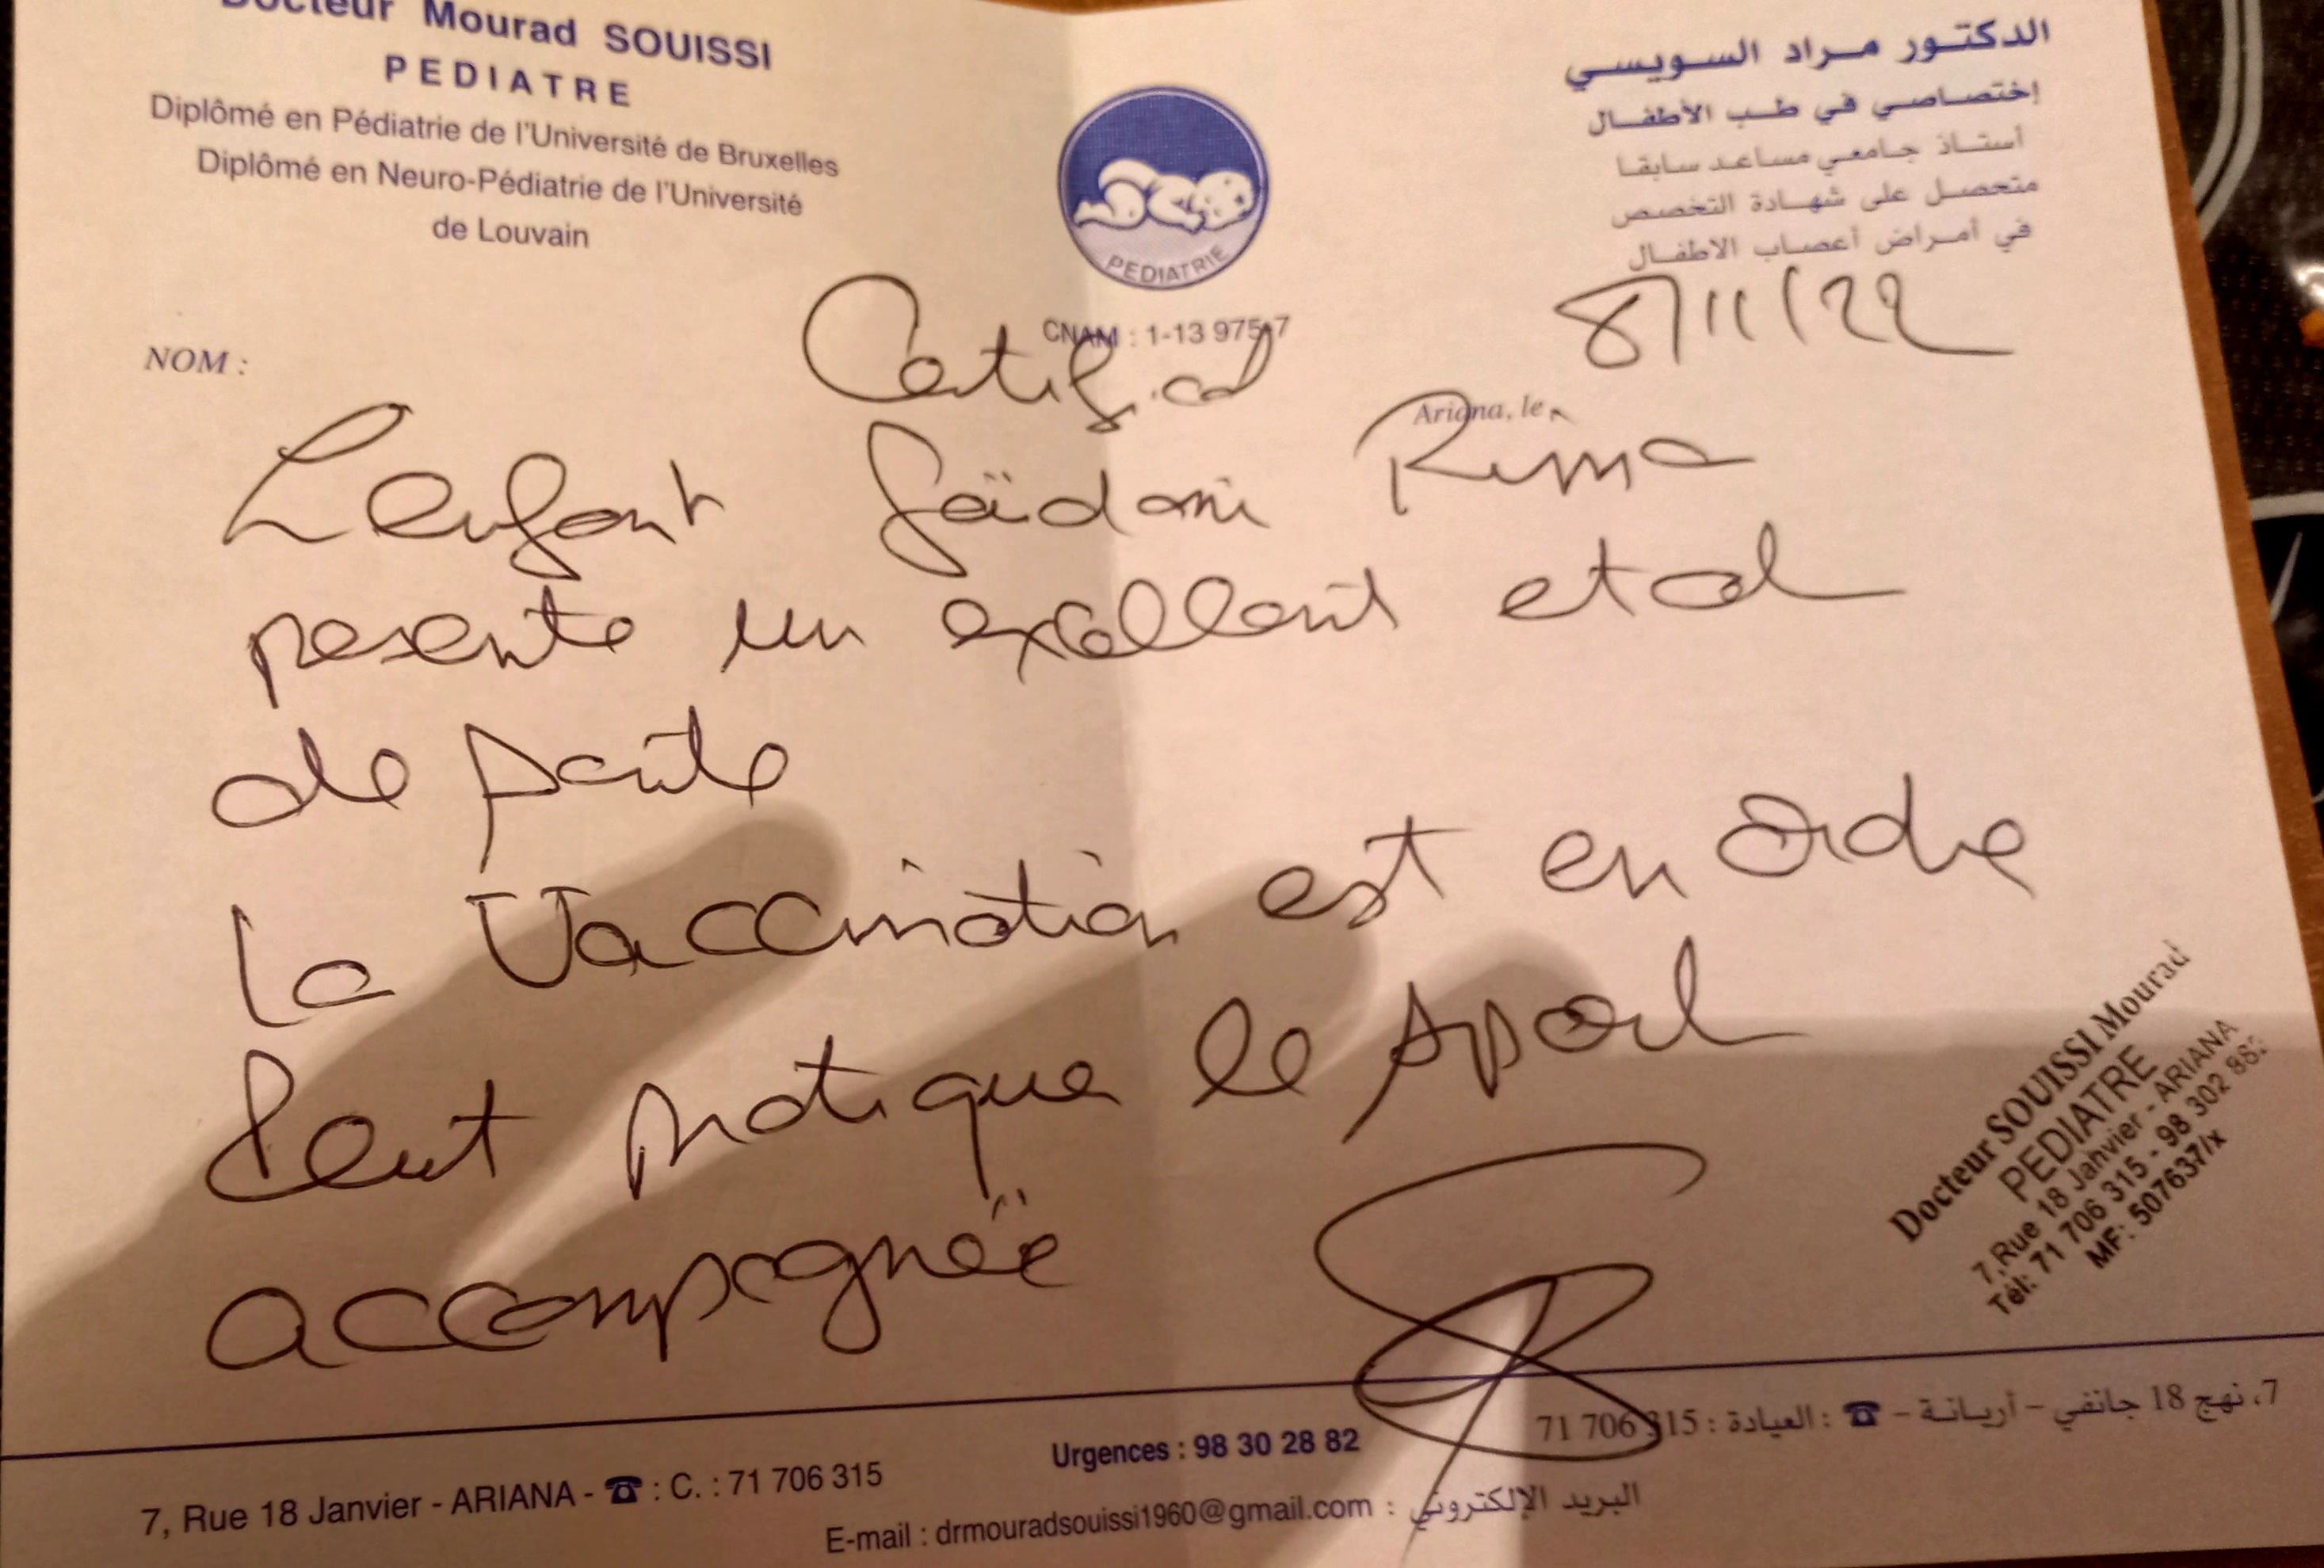 Docteur Mourad SOUISSI
PEDIATRE
Diplômé en Pédiatrie de l'Université de Bruxelles
Diplômé en Neuro-Pédiatrie de l'Université
de Louvain
PEDIATRIE
CNAM : 1-13 975-7
الدكتور مراد السويسي
إختصاصي في طب الأطفال
أستاذ جامعي مساعد سابقا
متحصل على شهادة التخصص
في أمراض أعصاب الاطفال
8/11/22
NOM :
Certificat
Ariana, le
L'enfant Saïdani Rima
presente un excellent etat
de sante
La Vaccination est en ordre
Peut pratique le sport
accompagnée
Docteur SOUISSI Mourad
PEDIATRE
7, Rue 18 Janvier - ARIANA
Tél: 71 706 315 - 98 302 882
MF: 507637/x
7, Rue 18 Janvier - ARIANA - ☎ : C. : 71 706 315
Urgences : 98 30 28 82
7، نهج 18 جانفي – أريانة – ☎ : العيادة : 71 706 315
E-mail : drmouradsouissi1960@gmail.com : البريد الإلكتروني